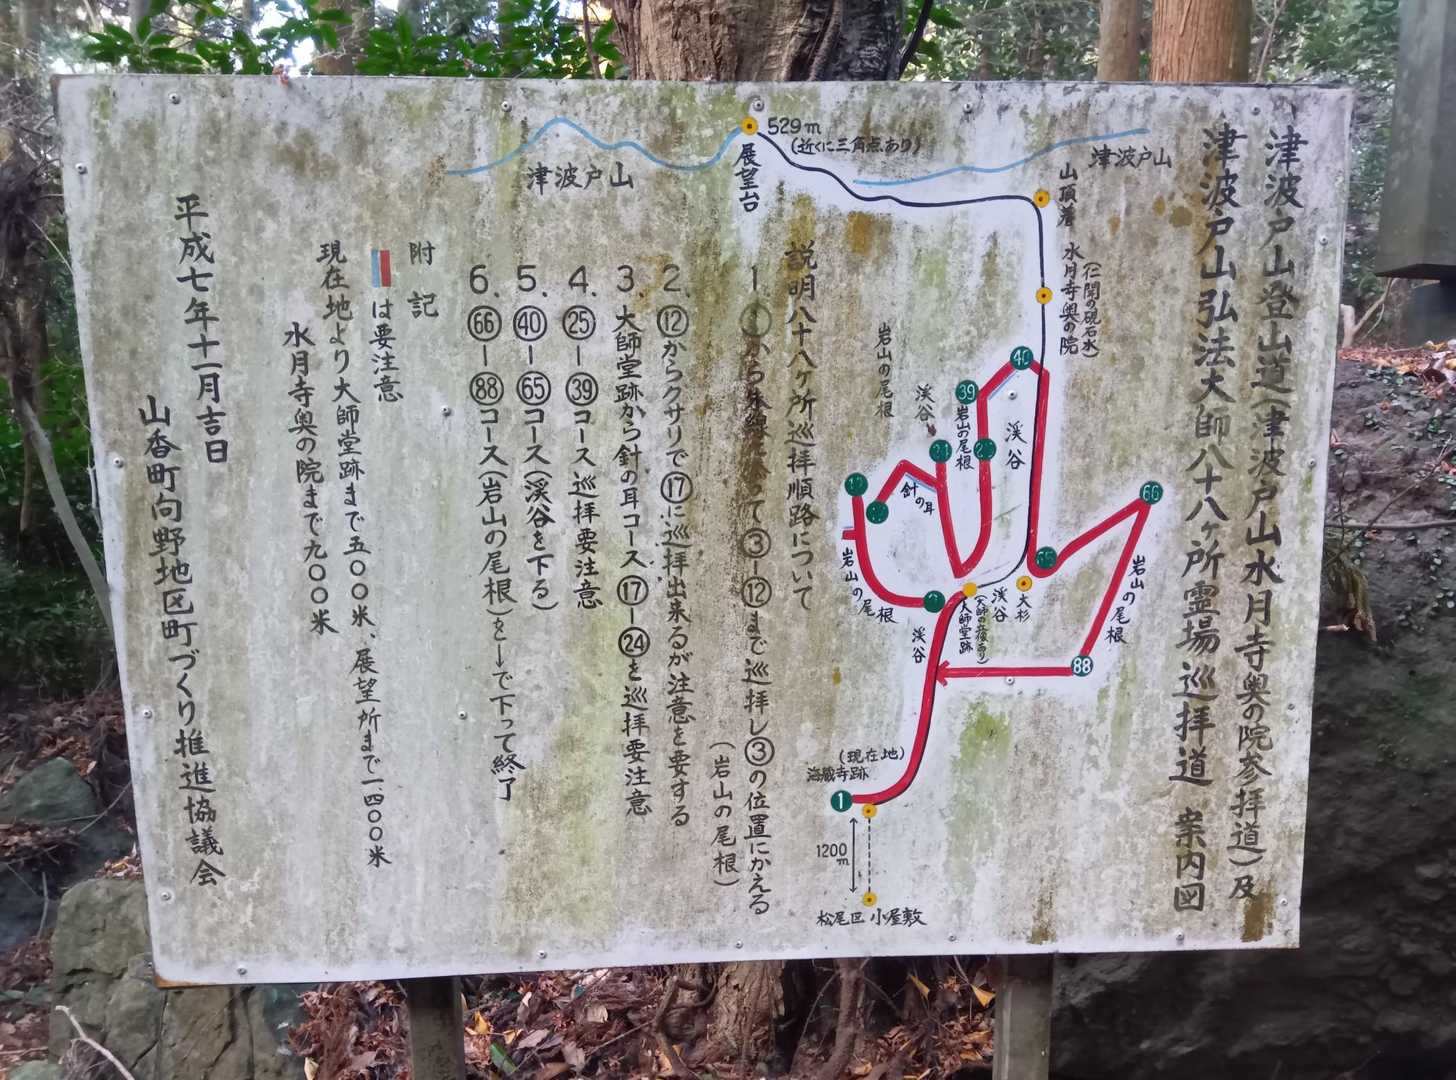 津波戸山登山道(津波戸山水月寺奥の院参拝道)及
津波戸山弘法大師八十八ヶ所霊場巡拝道 案内図
津波戸山
529m
(近くに三角点あり)
展望台
津波戸山
山頂
水月寺奥の院
(仁聞の硯石水)
40
39
渓谷
岩山の尾根
渓谷
岩山の尾根
針の耳
66
65
岩山の尾根
岩山の尾根
渓谷
大師堂跡
渓谷
大杉
88
渓谷
(現在地)
海蔵寺跡
1
1200m
松尾区 小屋敷
説明八十八ヶ所巡拝順路について
1. て③―⑫まで巡拝し③の位置にかえる
(岩山の尾根)
2. ⑫からクサリで⑰に巡拝出来るが注意を要する
3. 大師堂跡から針の耳コース⑰―㉔を巡拝要注意
4. ㉕―㊴コース巡拝要注意
5. ㊵―65コース(渓谷を下る)
6. 66―88コース(岩山の尾根)を←で下って終了
附記
は要注意
現在地より大師堂跡まで五〇〇米、展望所まで一、四〇〇米
水月寺奥の院まで九〇〇米
平成七年十一月吉日
山香町向野地区町づくり推進協議会